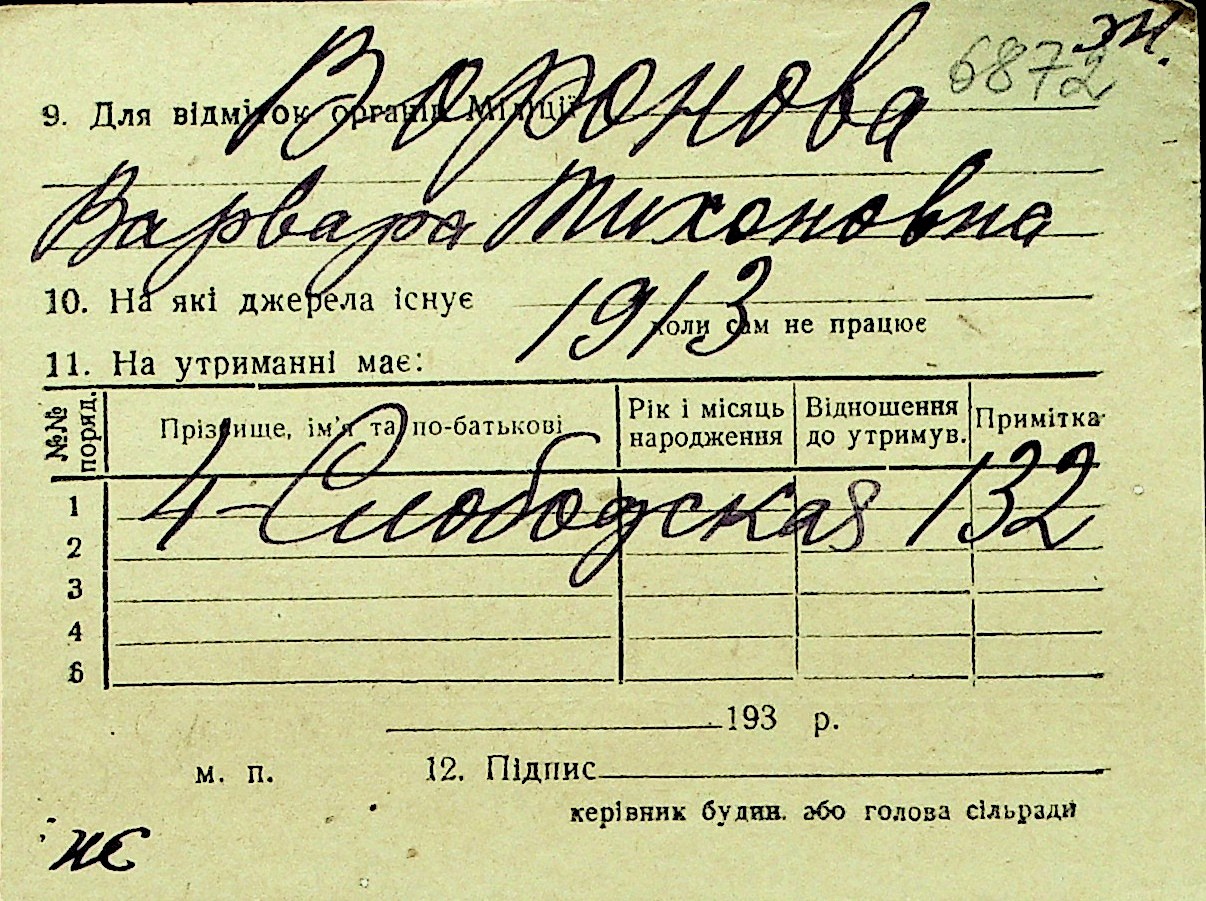 эн.
6872
Воронова
9. Для відміток органів Міліції
Варвара Тихоновна
10. На які джерела існує
1913
коли сам не працює
11. На утриманні має:
№№ поряд. Прізвище, ім'я та по-батькові Рік і місяць народження Відношення до утримув. Примітка
4-Слободская 132
1
2
3
4
6
193 р.
м. п. 12. Підпис
керівник будин. або голова сільради